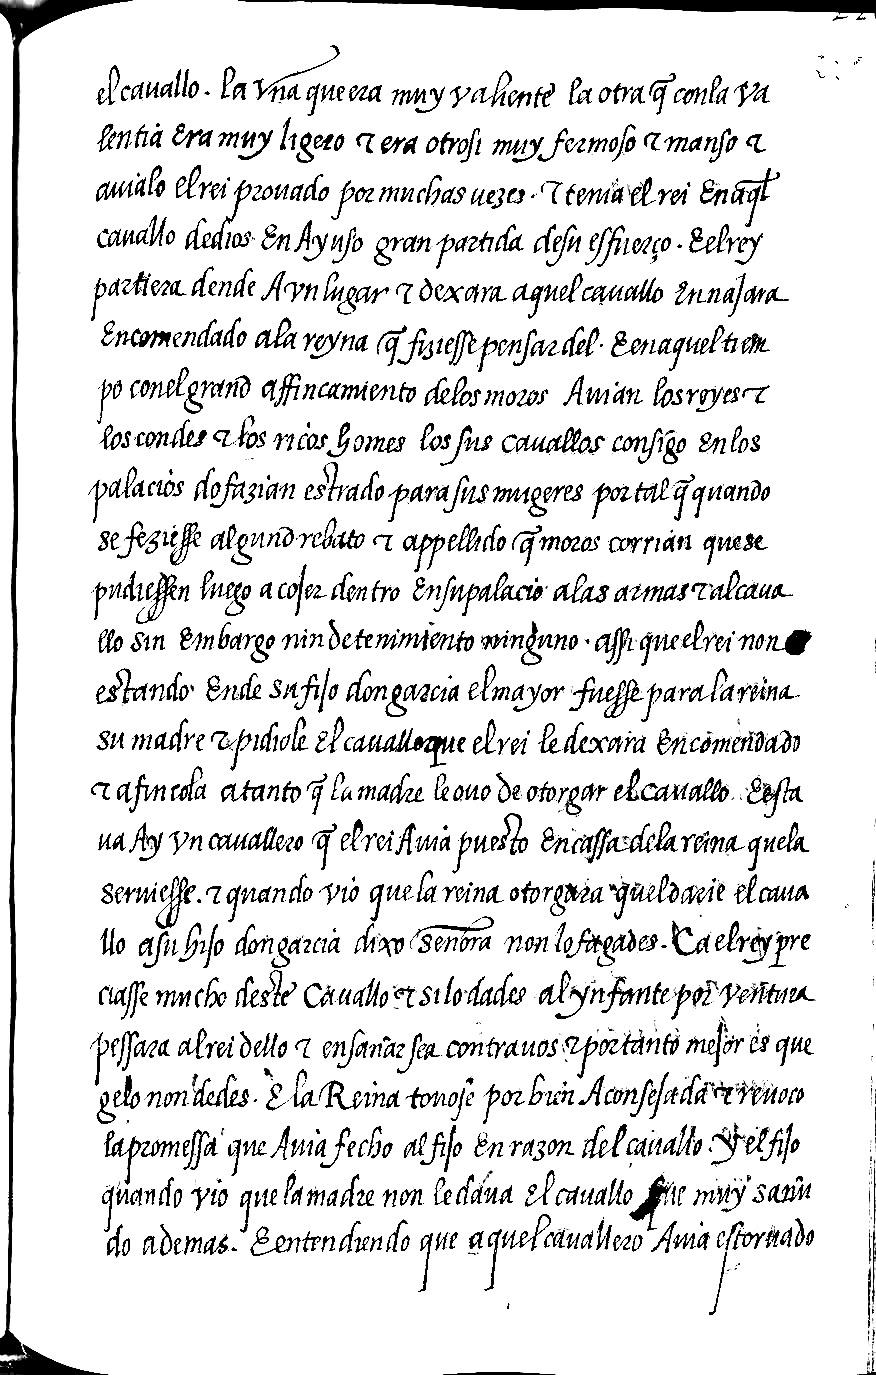 el cauallo. la vna que era muy valiente la otra q̃ con la va
lentia Era muy ligero τ era otrosi muy fermoso τ manso τ
auialo el rei prouado por muchas uezes. τ tenia el rei En aq̃l
cauallo dedios En Ayuso gran partida desu esfuerço. E el rey
partiera dende A vn lugar τ dexara aquel cauallo En najara
Encomendado a la reyna q̃ fiziesse pensar del. E en aquel tiem
po con el grand affincamiento de los moros Auian los reyes τ
los condes τ los ricos homes los sus cauallos consigo En los
palacios do fazian estrado para sus mugeres por tal q̃ quando
se feziesse algund rebato τ appellido q̃ moros corrian que se
pudiessen luego a cojer dentro En su palacio a las armas τ al caua
llo sin Embargo nin detenimiento ninguno. assi que el rei non
estando Ende su fijo don garcia el mayor fuesse para la reina
su madre τ pidiole El cauallo que el rei le dexara Encomendado
τ afincola a tanto q̃ la madre le ouo de otorgar el cauallo. E esta
ua Ay vn cauallero q̃ el rei Auia puesto En cassa de la reina que la
seruiesse. τ quando vio que la reina otorgara quel darie el caua
llo a su hijo don garcia dixo señora non lo fagades. Ca el rey pre
ciasse mucho deste Cauallo τ si lo dades al ynfante por ventura
pessara al rei dello τ ensañar sea contra uos τ por tanto mejor es que
gelo non dedes. E la Reina touose por bien Aconsejada τ reuoco
la promessa que Auia fecho al fijo En razon del cauallo. Y el fijo
quando vio que la madre non le daua El cauallo fue muy sañu
do ademas. E entendiendo que aquel cauallero Auia estoruado